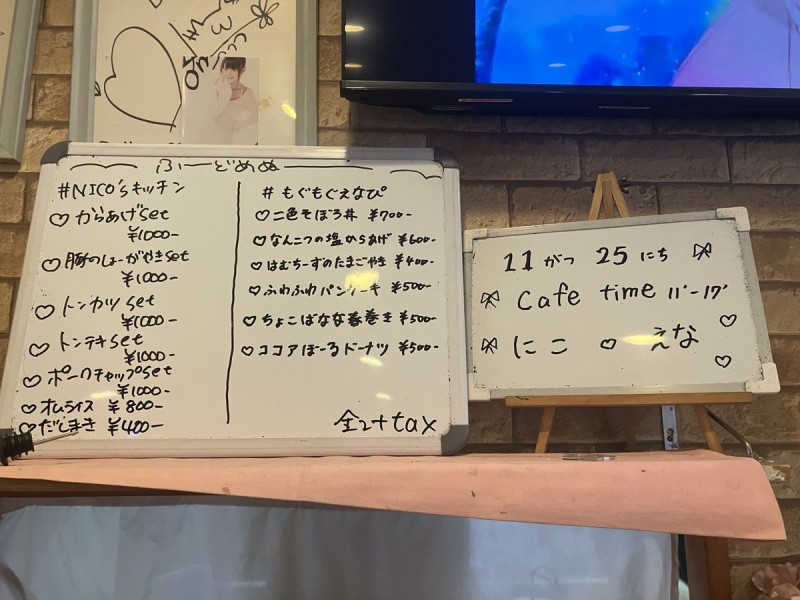 ふーどめぬ
#NICO'sキッチン
♡からあげset
¥1000-
♡豚のしょーがやきset
¥1000-
♡トンカツset
¥1000-
♡トンテキset
¥1000-
♡ポークチャップset
¥1000-
♡オムライス ¥800-
♡だしまき ¥400-
#もぐもぐえなぴ
♡二色そぼろ丼 ¥700-
♡なんこつの塩からあげ ¥600-
♡はむちーずのたまごやき ¥400-
♡ふわふわパンケーキ ¥500-
♡ちょこばなな春巻き ¥500-
♡ココアぼーるドーナツ ¥500-
全て+tax
11がつ 25にち
Cafe time 11'-17'
にこ ♡ えな